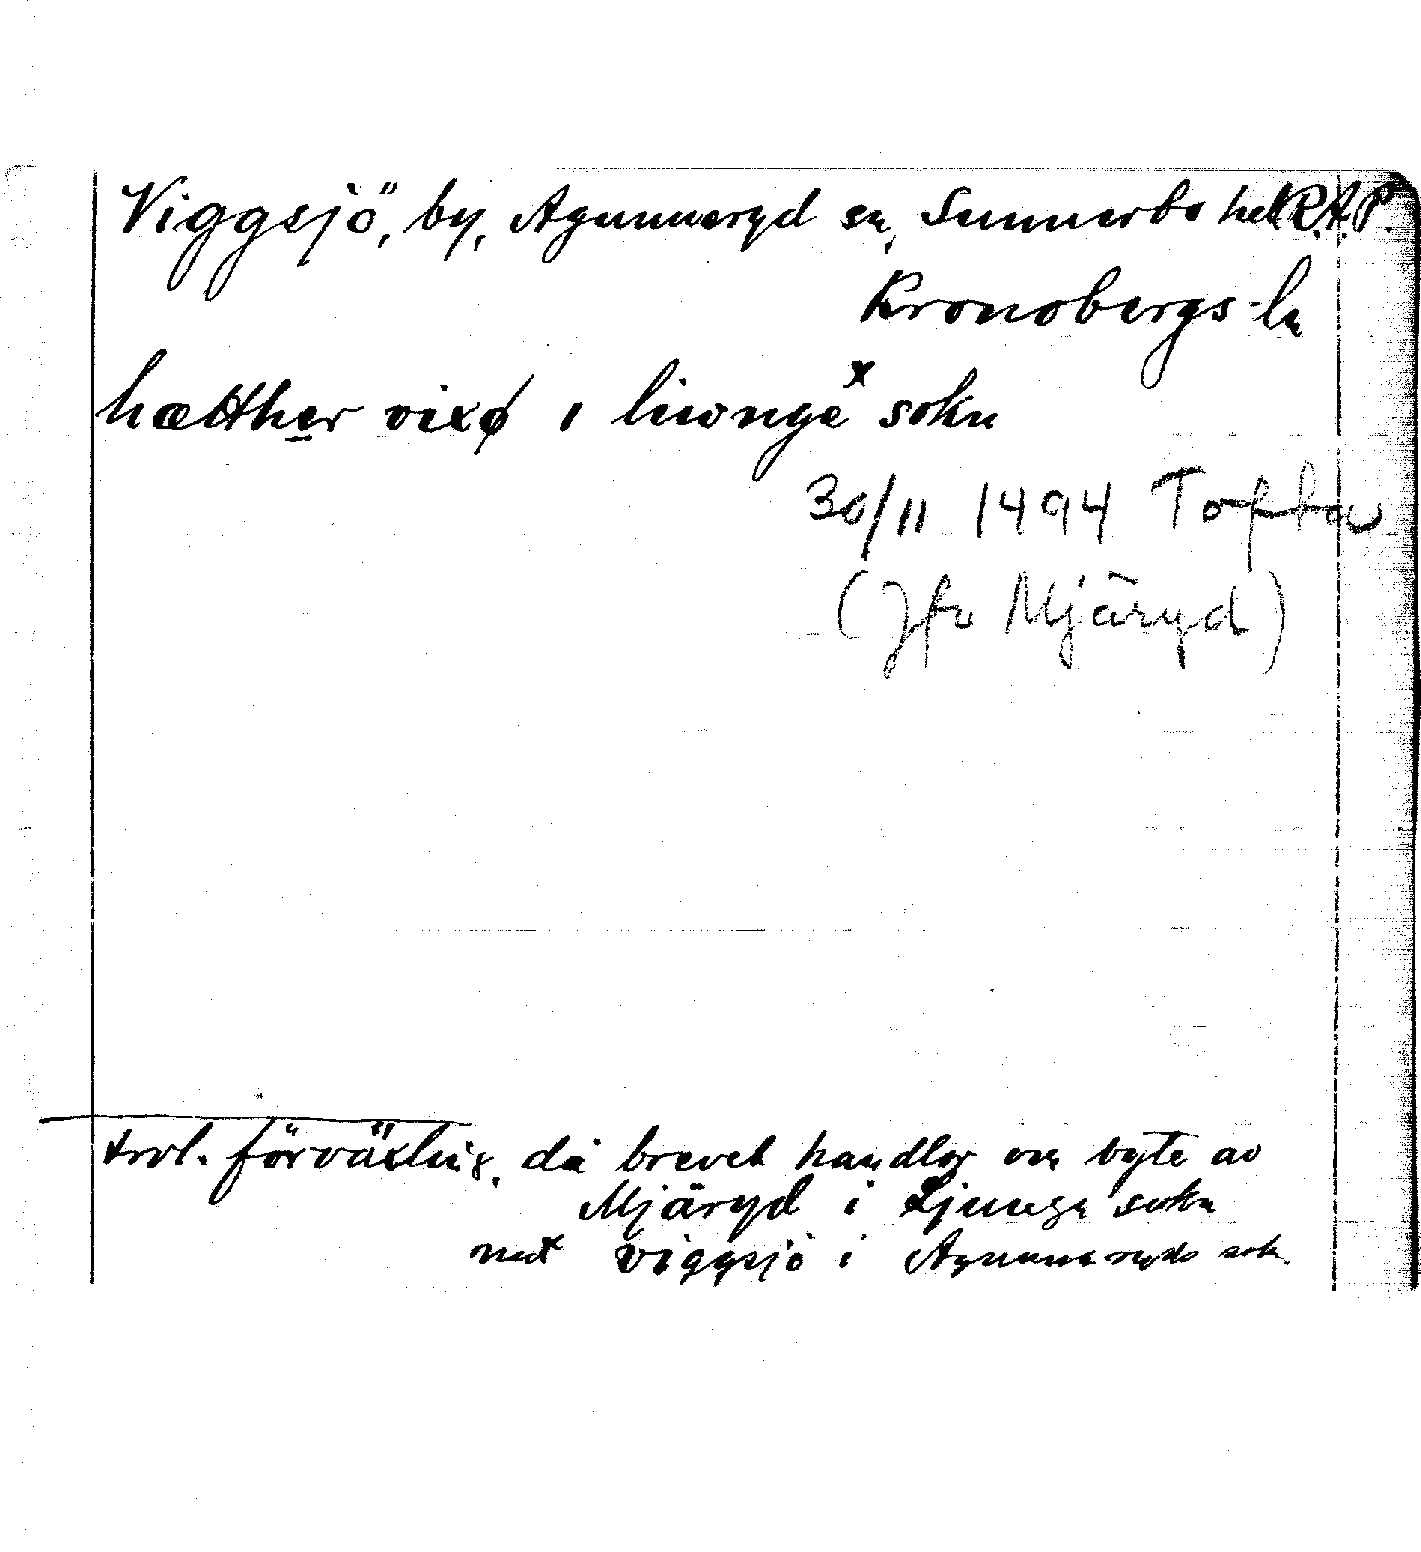 Viggsjö, by, Agunnaryd sn, Sunnerbo hd R.A.P.
Kronobergs ln
hætther vixø i liwngæ x sokn
30/11 1494 Tofta
(Jfr Mjäryd)
trol. förväxling, då brevet handlar om byte av
Mjäryd i Ljunga sokn
mot Viggsjö i Agunnaryds sok.